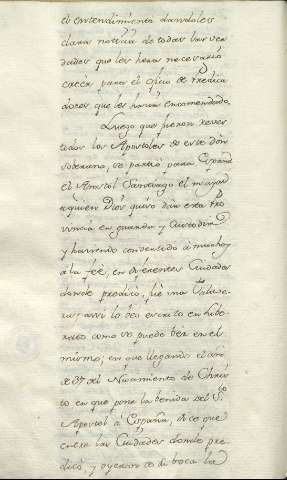 el entendimiento dandoles
clara noticia de todas las ver
dades que les hera necesario
creer para el oficio de Predica
dores que les havia encomendado.
Luego que fueron reves
tidos los Apostoles de este don
soberano, se partió para España
el Apostol Santiago el mayor
a quien Dios quiso dar esta Pro
vincia en guarda y Custodia
y haviendo convertido á muchos
á la feé, en diferentes Ciudades
donde predicó, fué una Talave
ra; assi lo deó escrito en
como se puede ver en el
mismo, en que llegando el año
de 37 del Nacimiento de Chris
to en que pone la benida del Sto
Apostol á España, dice que
entre las Ciudades donde pre
dicó, y oyeron de su boca la